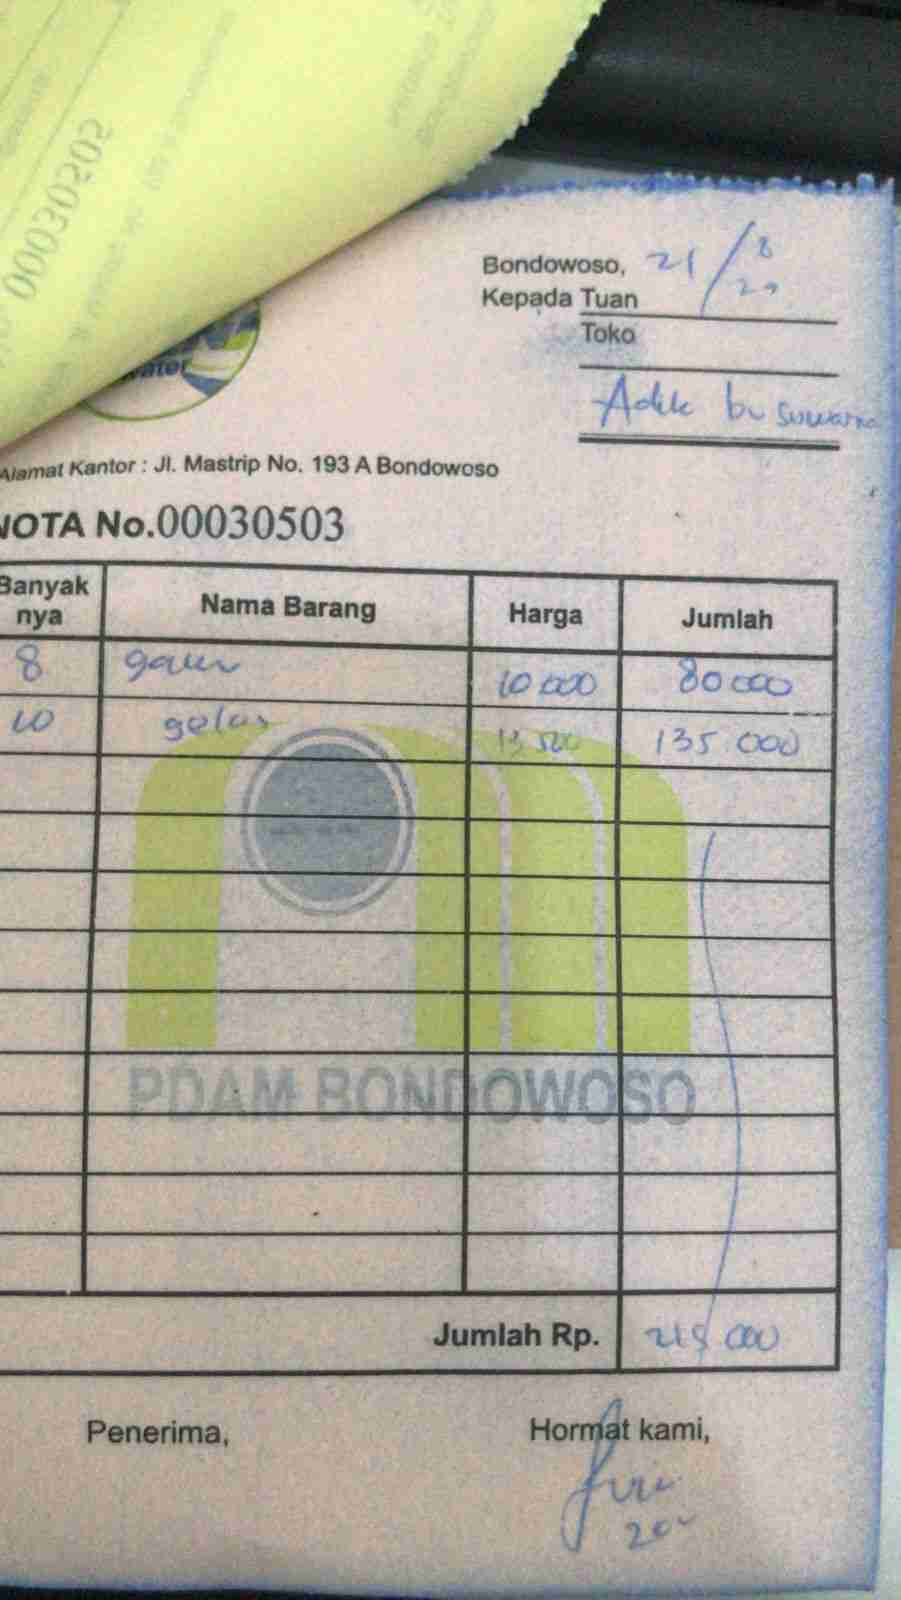 00030505
Bondowoso, 21/8
20
Kepada Tuan
Toko
water
Adik bu suwarna
Alamat Kantor : Jl. Mastrip No. 193 A Bondowoso
NOTA No.00030503
Banyak nya Nama Barang Harga Jumlah
8 galon 10 000 80 000
10 gelas 13 500 135 000
PDAM BONDOWOSO
Jumlah Rp. 215 000
Penerima, Hormat kami,